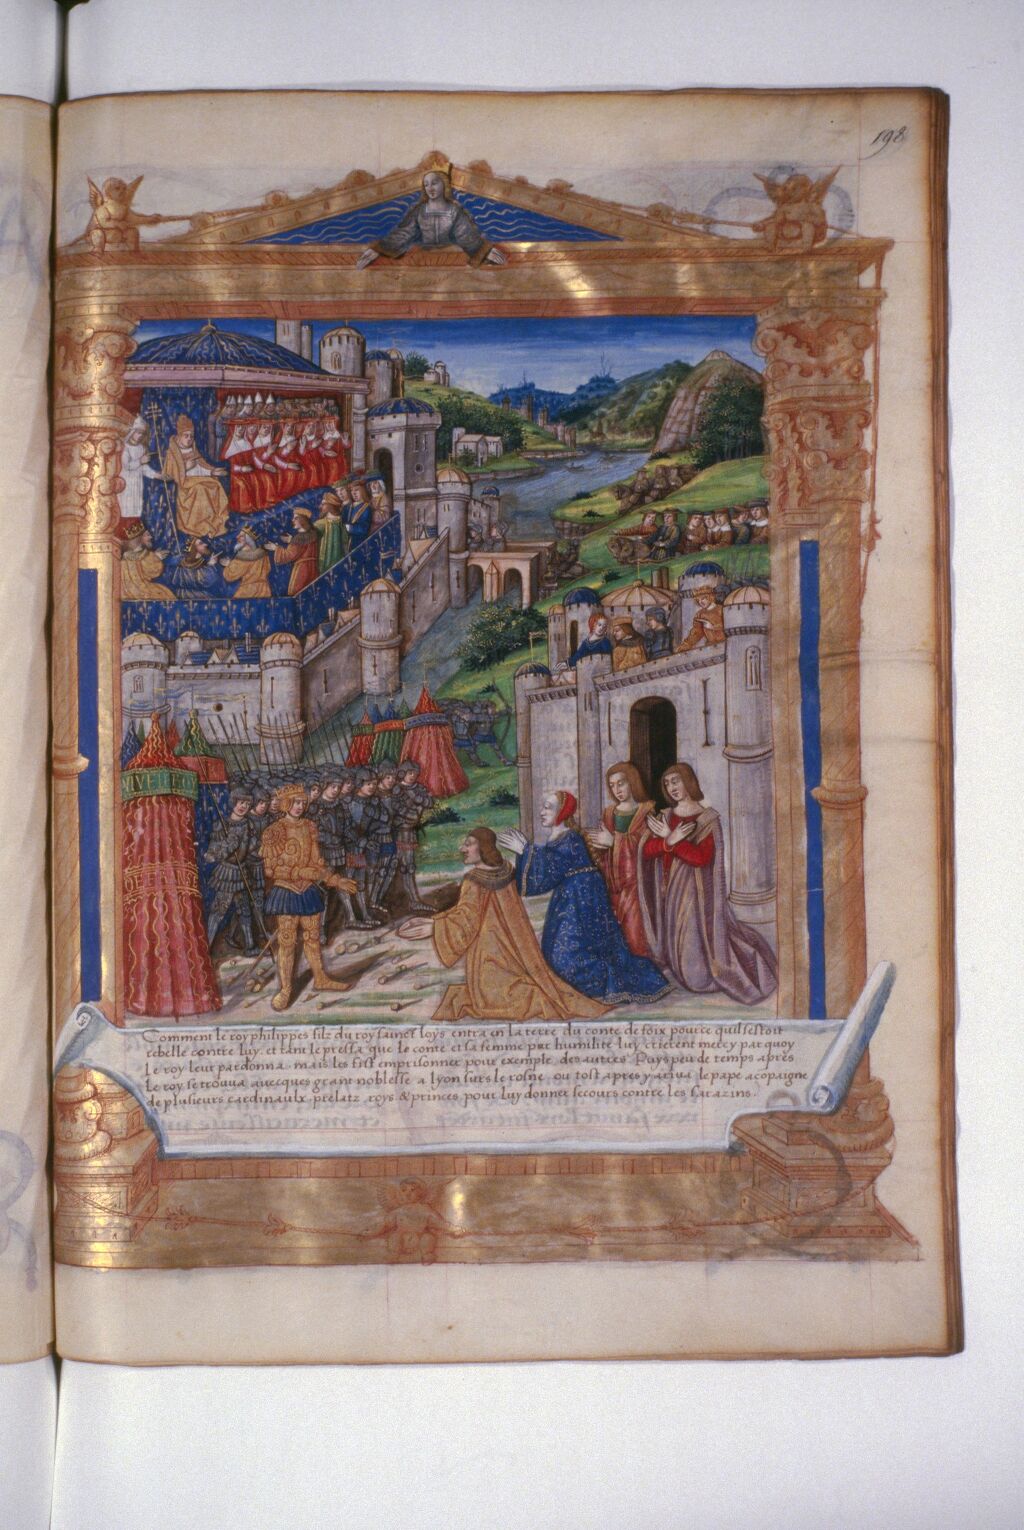 198
VIVE LE ROY
Comment le roy philippes filz du roy sainct loys entra en la terre du conte de foix pource quil sestoit
rebelle contre luy. et tant le pressa que le conte et sa femme par humilite luy crierent mercy par quoy
le roy leur pardonna. mais les fist emprisonner pour exemple des autres. Puys peu de temps apres
le roy se trouva avecques grant noblesse a lyon surs le rosne. ou tost apres y ariva le pape acopaigne
de plusieurs cardinaulx. prelatz. roys & princes. pour luy donner secours contre les sarazins.